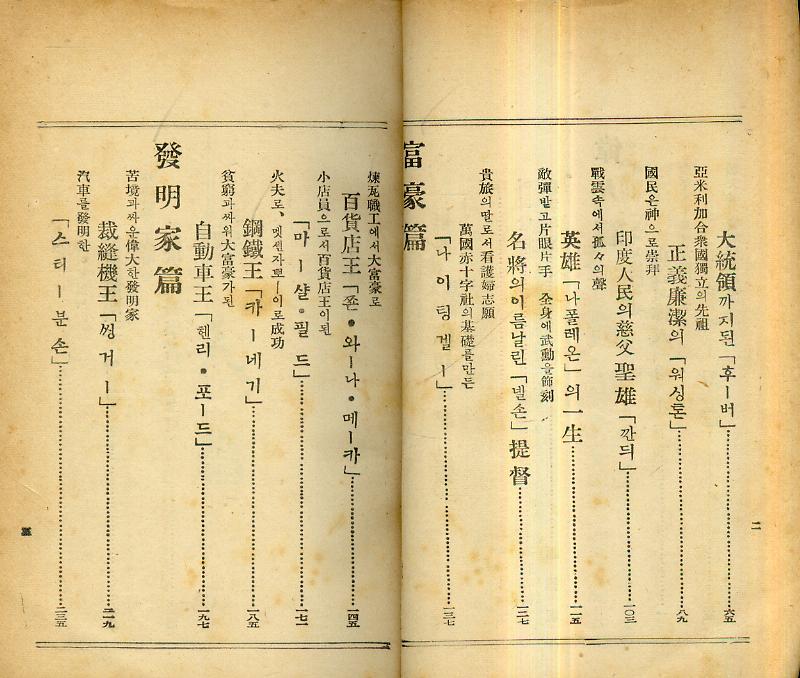 大統領까지된「후ー버」……六五
亞米利加合衆國獨立의先祖
正義廉潔의「워싱톤」……八九
國民은神으로崇拜
印度人民의慈父聖雄「깐듸」……一〇三
戰雲속에서孤々의聲
英雄「나폴레온」의一生……一一五
敵彈받고片眼片手 全身에武勳을飾刻
名將의이름날린「넬손」提督……一二七
貴族의딸로서看護婦志願
萬國赤十字社의基礎를만든
「나이팅겔ー」……一三七
富豪篇
煉瓦職工에서大富豪로
百貨店王「쫀•와ー나•메ー카」……一四五
小店員으로서百貨店王이된
「마ー샬•필드」……一七一
火夫로、멧센자뽀ー이로成功
鋼鐵王「카ー네기」……一八五
貧窮과싸워大富豪가된
自動車王「헨리•포ー드」……一九七
發明家篇
苦境과싸운偉大한發明家
裁縫機王「씽거ー」……二一九
汽車를發明한
「스티ー분손」……二三五
二
三